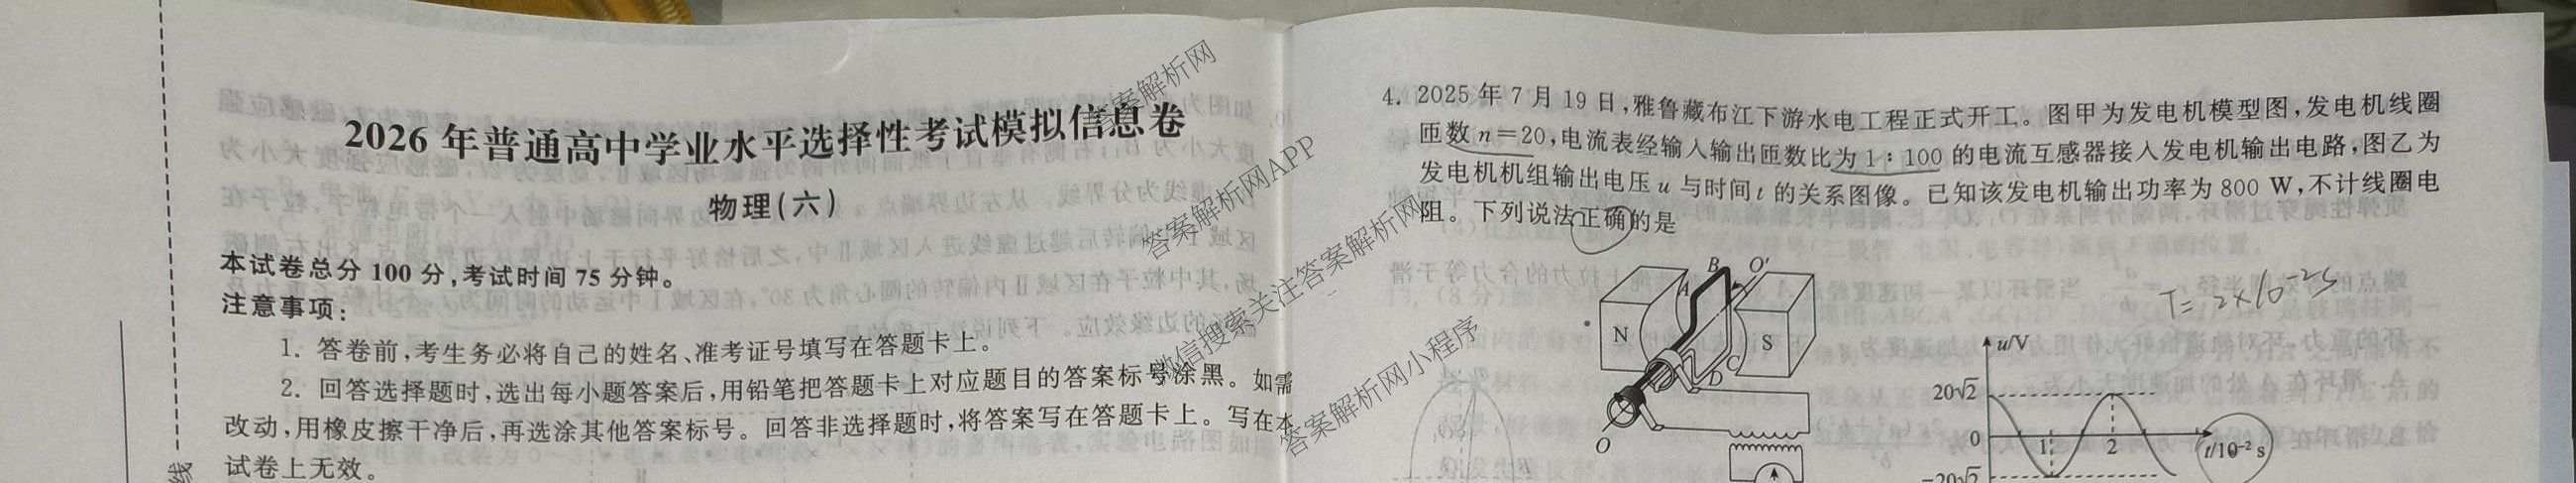 2026年普通高中学业水平选择性考试模拟信息卷
物理(六)
本试卷总分100分,考试时间75分钟。
注意事项:
1. 答卷前,考生务必将自己的姓名、准考证号填写在答题卡上。
2. 回答选择题时,选出每小题答案后,用铅笔把答题卡上对应题目的答案标号涂黑。如需
改动,用橡皮擦干净后,再选涂其他答案标号。回答非选择题时,将答案写在答题卡上。写在本
试卷上无效。
线
4. 2025年7月19日,雅鲁藏布江下游水电工程正式开工。图甲为发电机模型图,发电机线圈
匝数n=20,电流表经输入输出匝数比为1:100的电流互感器接入发电机输出电路,图乙为
发电机机组输出电压u与时间t的关系图像。已知该发电机输出功率为800 W,不计线圈电
阻。下列说法正确的是
T=2×10⁻²s
N
A
B
O'
S
C
D
O
u/V
20√2
0
1
2
t/10⁻² s
-20√2
答案解析网
答案解析网APP
微信搜索关注答案解析网
答案解析网小程序